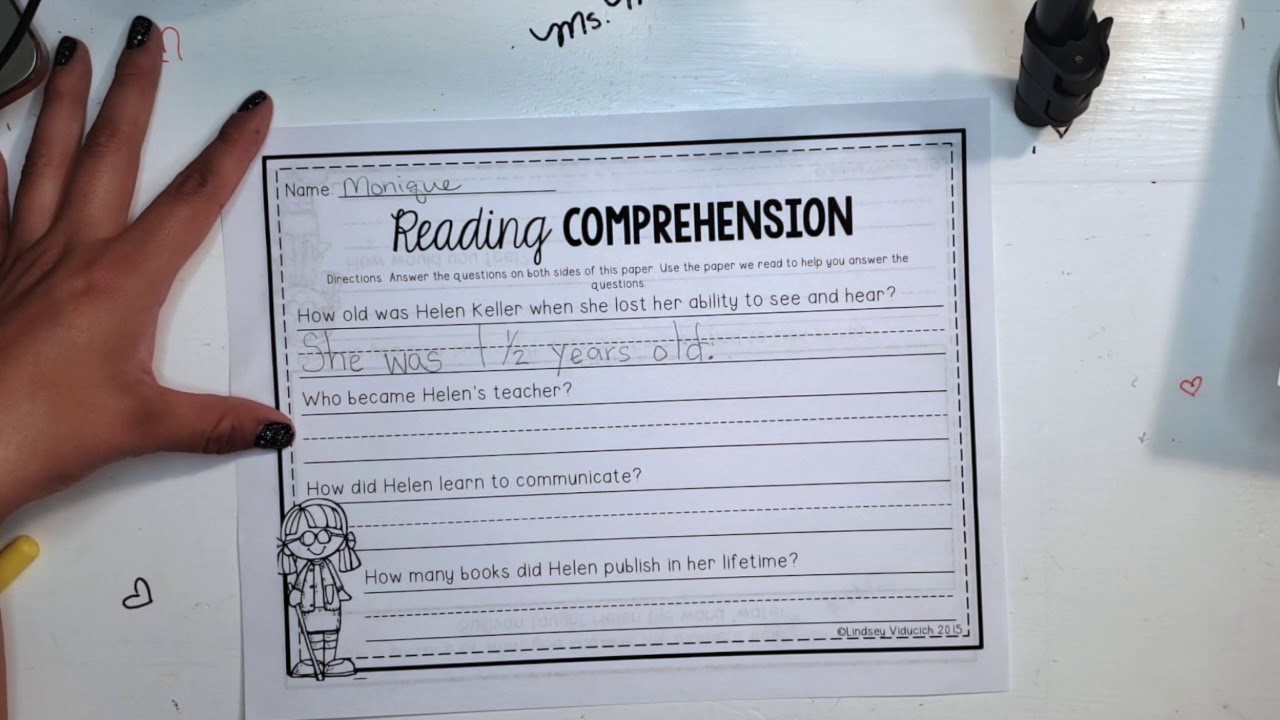 Ms.
Name: Monique
Reading COMPREHENSION
Directions: Answer the questions on both sides of this paper. Use the paper we read to help you answer the
questions.
How old was Helen Keller when she lost her ability to see and hear?
She was 1 ½ years old.
Who became Helen's teacher?
How did Helen learn to communicate?
How many books did Helen publish in her lifetime?
©Lindsey Viducich 2015